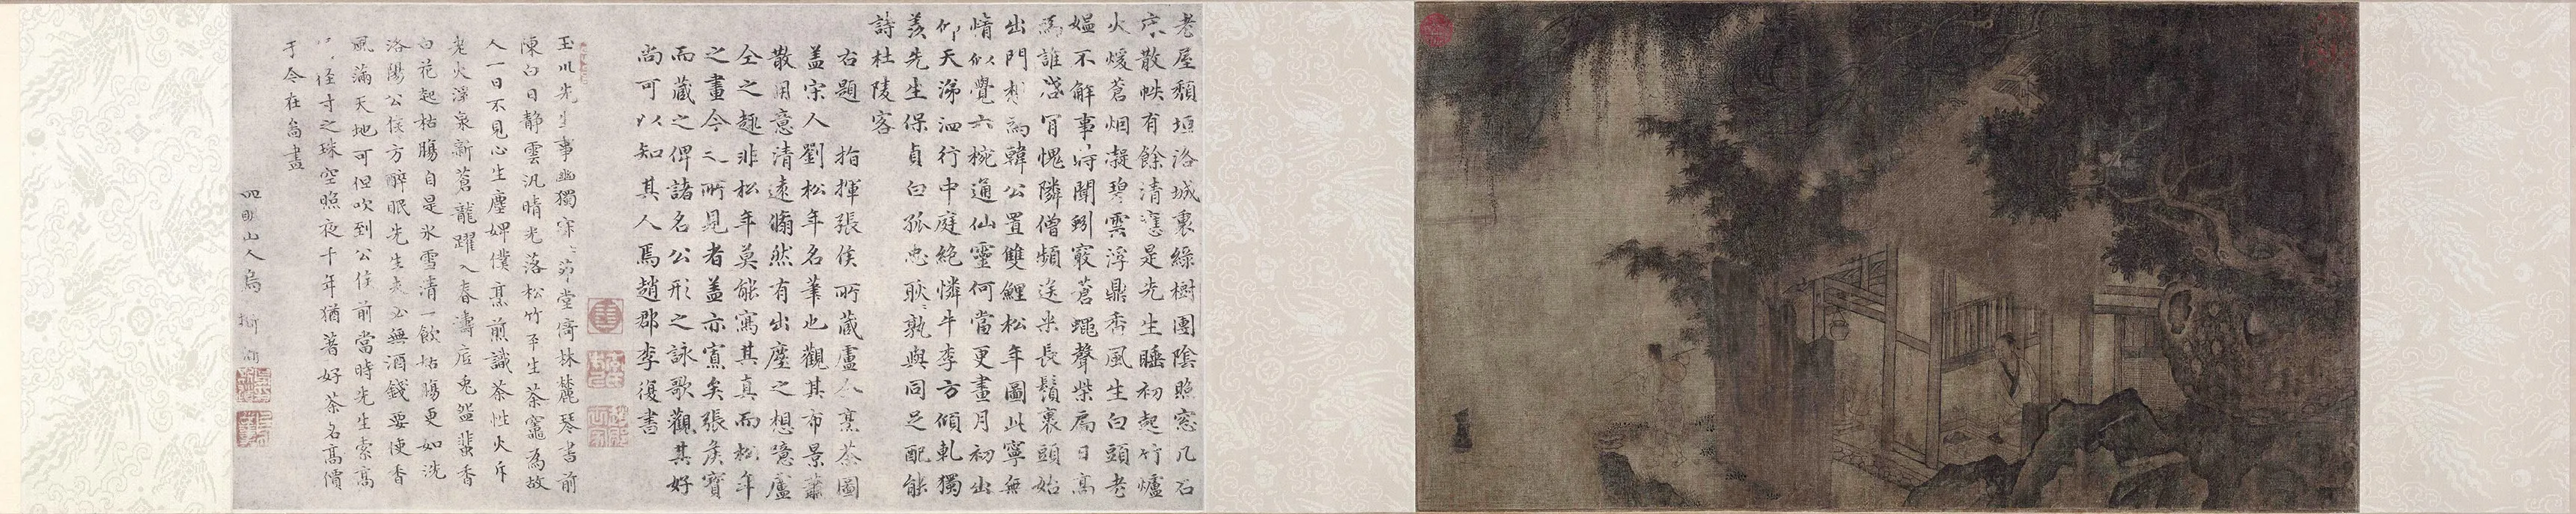 老屋頹垣洛城裏綠樹團陰照窓几石
床散帙有餘清是先生睡初起竹爐
火煖蒼烟凝碧雲浮鼎香風生白頭老
媼不解事時聞蚓竅蒼蠅聲柴扃日高
為誰啓肎愧隣僧頻送米長鬚裹頭始
出門想為韓公置雙鯉松年圖此寧無
情似覺六椀通仙靈何當更畫月初出
仰天涕泗行中庭絶憐牛李方傾軋獨
羨先生保貞白孤忠耿〻孰與同足配能
詩杜陵客
右題 指揮張侯所藏盧仝烹茶圖
蓋宋人劉松年名筆也觀其布景蕭
散用意清遠翛然有出塵之想噫盧
仝之趣非松年莫能寫其真而松年
之畫今之所見者蓋亦寡矣張侯寶
而藏之俾諸名公形之詠歌觀其好
尚可以知其人焉趙郡李復書
玉川先生事幽獨寂〻茆堂倚林麓琴書前
陳白日靜雲汎晴光落松竹平生茶竈為故
人一日不見心生塵婢僕烹煎識茶性火斥
老火浮泉新蒼龍躍入春濤底兎盌蜚香
白花起枯腸自是氷雪清一飲枯腸更如洗
洛陽公侯方醉眠先生無酒錢要使香
風滿天地可但吹到公侯前當時先生索高
徑寸之珠空照夜千年猶著好茶名高價
于今在畫
四明山人烏